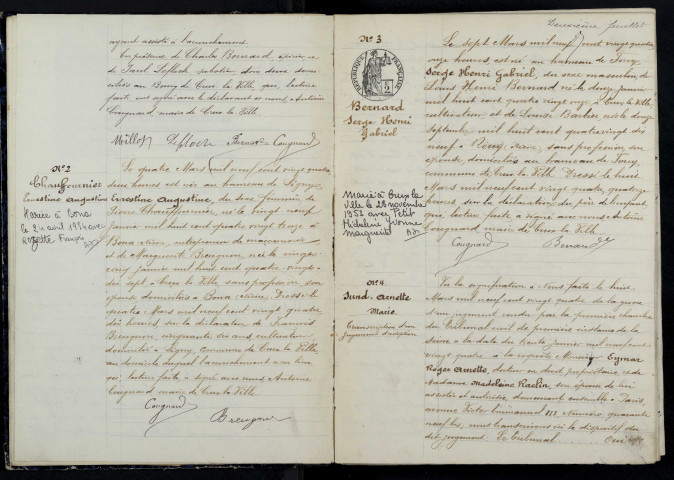 ayant assisté à l'accouchement.
En présence de Charles Bernard,
de Paul Lefloch sabotier tous deux domi
ciliés au Bourg de Crux la Ville que, lecture
faite, ont signé avec le déclarant et nous, Antoine
Cougnard, maire de Crux la Ville
Millot Lefloch Bernard Cougnard
N° 2
Chauffournier
Ernestine Augustine
Mariée à Bona
le 24 avril 1954 avec
François
Le quatre Mars mil neuf cent vingt quatre
deux heures est née au hameau de Ligny
Ernestine Augustine, du sexe féminin, de
Pierre Chauffournier, né le vingt neuf
janvier mil huit cent quatre vingt onze à
Bona, entrepreneur de maçonnerie
et de Marguerite Breugnon, née le vingt
cinq janvier mil huit cent quatre vingt
dix sept à Crux la Ville sans profession, son
épouse domiciliés à Bona. Dressé le
quatre Mars mil neuf cent vingt quatre
dix heures, sur la déclaration de François
Breugnon, cinquante six ans, cultivateur
domicilié à Ligny commune de Crux la Ville,
au domicile duquel l'accouchement a eu lieu
qui, lecture faite a signé avec nous Antoine
Cougnard maire de Crux la Ville.
Cougnard
Breugnon
Deuxième feuillet
N° 3
RÉPUBLIQUE FRANÇAISE
Bernard
Serge Henri
Gabriel
Marié à Crux la
Ville le 28 novembre
1953 avec Petit
Yvonne
Marguerite
Le sept Mars mil neuf cent vingt quatre
onze heures, est né au hameau de
Serge Henri Gabriel, du sexe masculin, de
Louis Henri Bernard né le douze janvier
mil huit cent quatre vingt onze à Crux la Ville
cultivateur, et de Louise née le douze
septembre mil huit cent quatre vingt dix
neuf à, sans profession, son
épouse, domiciliés au hameau de
commune de Crux la Ville. Dressé le huit
Mars mil neuf cent vingt quatre, quatorze
heures, sur la déclaration du père de l'enfant,
qui, lecture faite a signé avec nous Antoine
Cougnard maire de Crux la Ville.
Cougnard Bernard
N° 4
Arnette
Marie
Transcription d'un
jugement d'adoption
Vu la signification à nous faite le huit
Mars mil neuf cent vingt quatre de la grosse
d'un jugement rendu par la première chambre
du Tribunal civil de première instance de la
Seine à la date du trente janvier mil neuf cent
vingt quatre à la requête Monsieur Eymar
Roger Arnette, docteur en droit propriétaire, et de
Madame Madeleine, son épouse de lui
assistée et autorisée, demeurant ensemble à Paris,
avenue Victor Emmanuel III, Numéro quarante
neuf bis, nous transcrivons ici le dispositif du
dit jugement. Le Tribunal